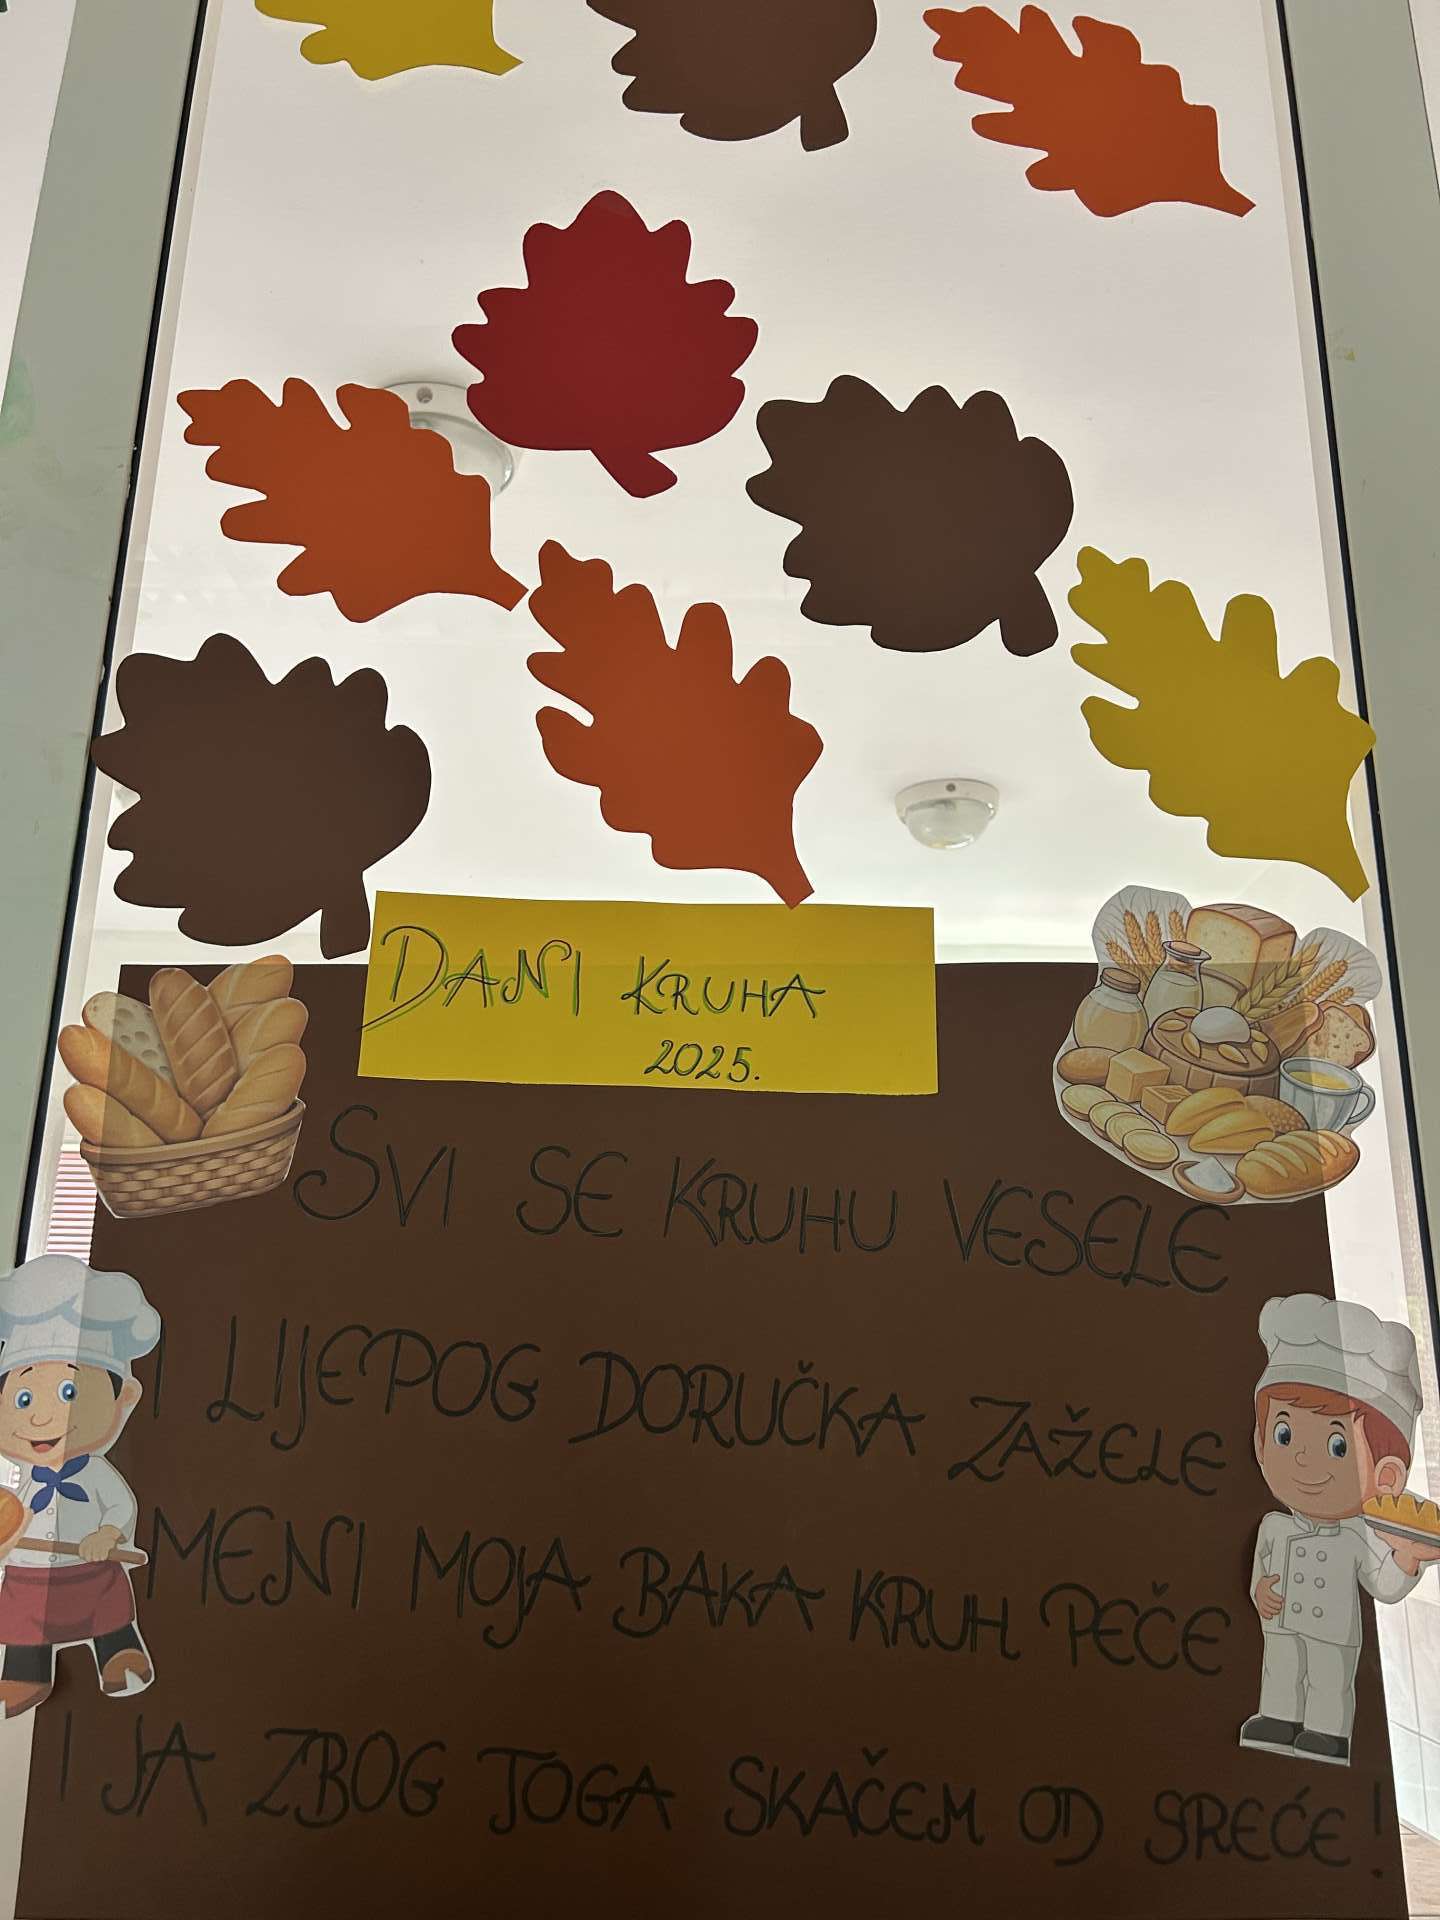 DANI KRUHA
2025.
SVI SE KRUHU VESELE
I LIJEPOG DORUČKA ZAŽELE
MENI MOJA BAKA KRUH PEČE
I JA ZBOG TOGA SKAČEM OD SREĆE!